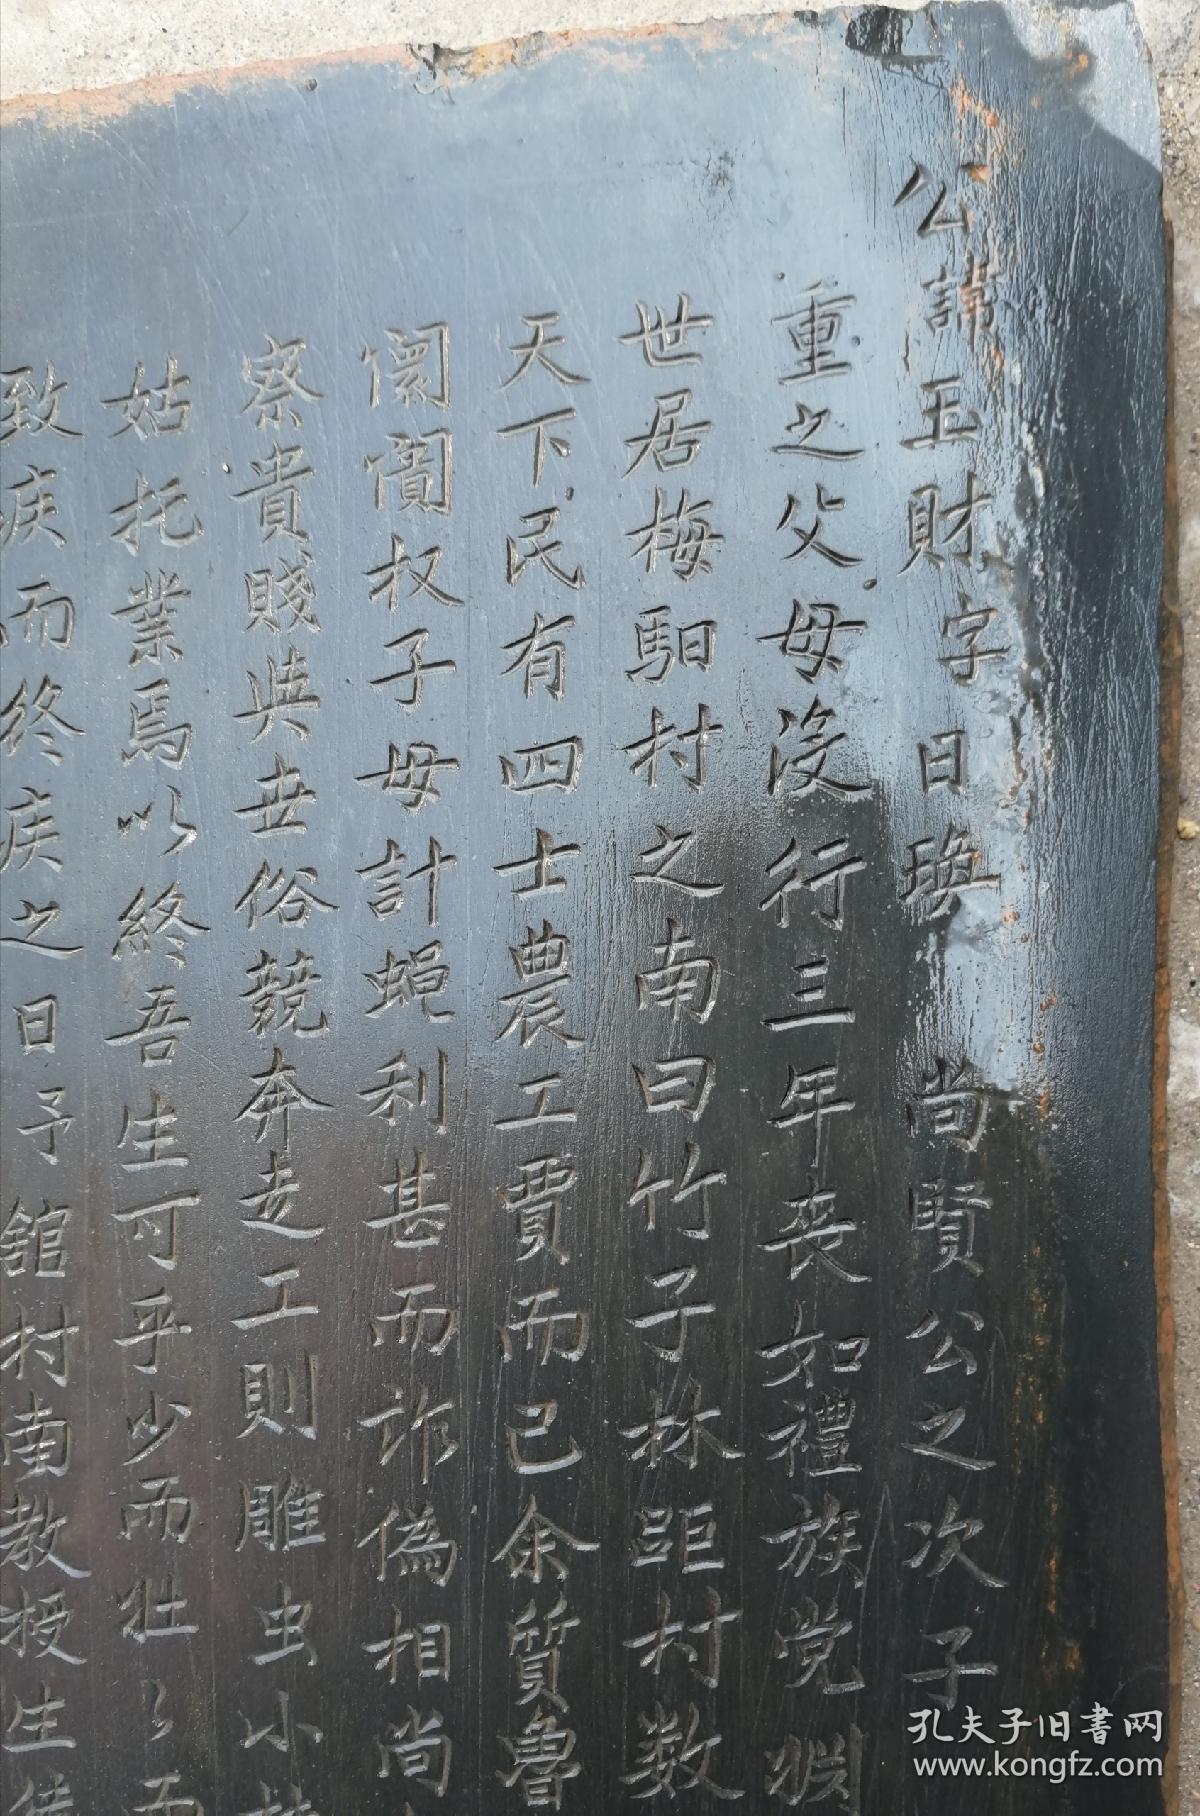 公諱玉財字日瑍 尚賢公之次子
重之父母沒行三年喪如禮族党
世居梅駟村之南曰竹子林距村数
天下民有四士農工賈而已余質魯
闤闠权子母計蝇利甚而詐偽相尚
察貴賤與世俗競奔走工則雕虫小
姑托業焉以終吾生可乎少而壯々而
致疾而終疾之日予舘村南教授生徒
孔夫子旧書网
www.kongfz.com